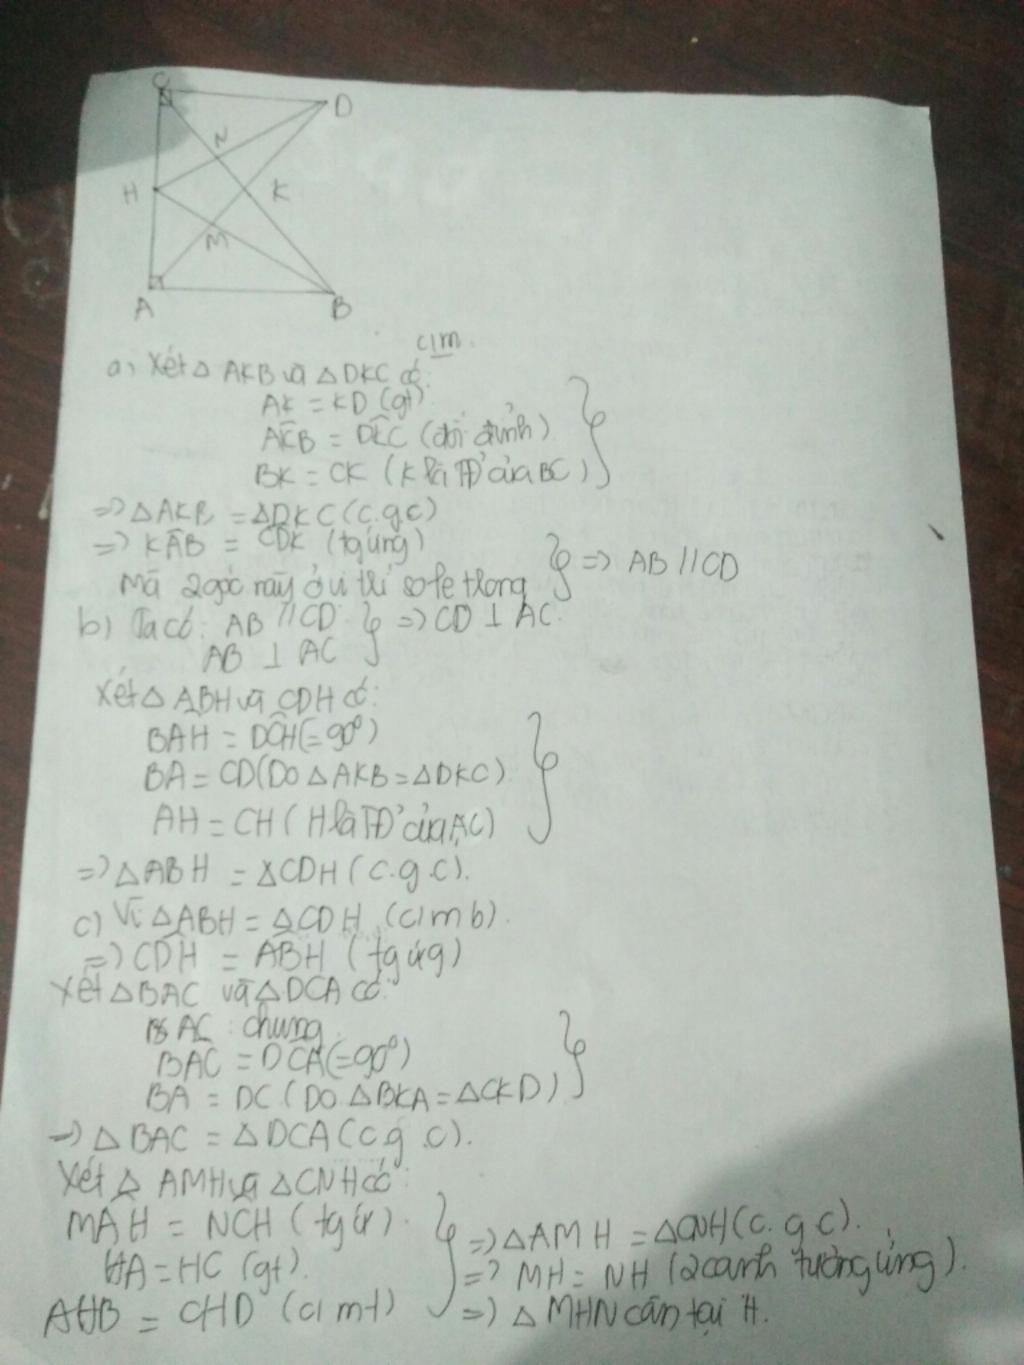 C
D
N
H
K
M
A
B
c/m
a, Xét △ AKB và △DKC có:
AK = KD (gt)
AK̂B = DK̂C (đối đỉnh)
BK = CK (K là TĐ của BC)
=> △AKB = △DKC (c.g.c)
=> KÂB = CD̂K (tg ứng)
Mà 2 góc này ở vị trí so le trong => AB // CD
b) Ta có: AB // CD => CD ⊥ AC.
AB ⊥ AC
Xét △ ABH và CDH có:
BÂH = DĈH (= 90°)
BA = CD (Do △AKB = △DKC)
AH = CH (H là TĐ của AC)
=> △ABH = △CDH (c.g.c).
c) Vì △ABH = △CDH (c/m b).
=> CD̂H = AB̂H (tg ứg)
Xét △BAC và △DCA có:
AC: chung
BÂC = DĈA (= 90°)
BA = DC (Do △BKA = △CKD)
=> △ BAC = △DCA (c.g.c).
Xét △ AMH và △CNH có:
MÂH = NĈH (tg ứ)
HA = HC (gt).
AHB = CHD (c/m t)
=> △AMH = △CNH (c.g.c).
=> MH = NH (2 cạnh tương ứng).
=> △ MHN cân tại H.